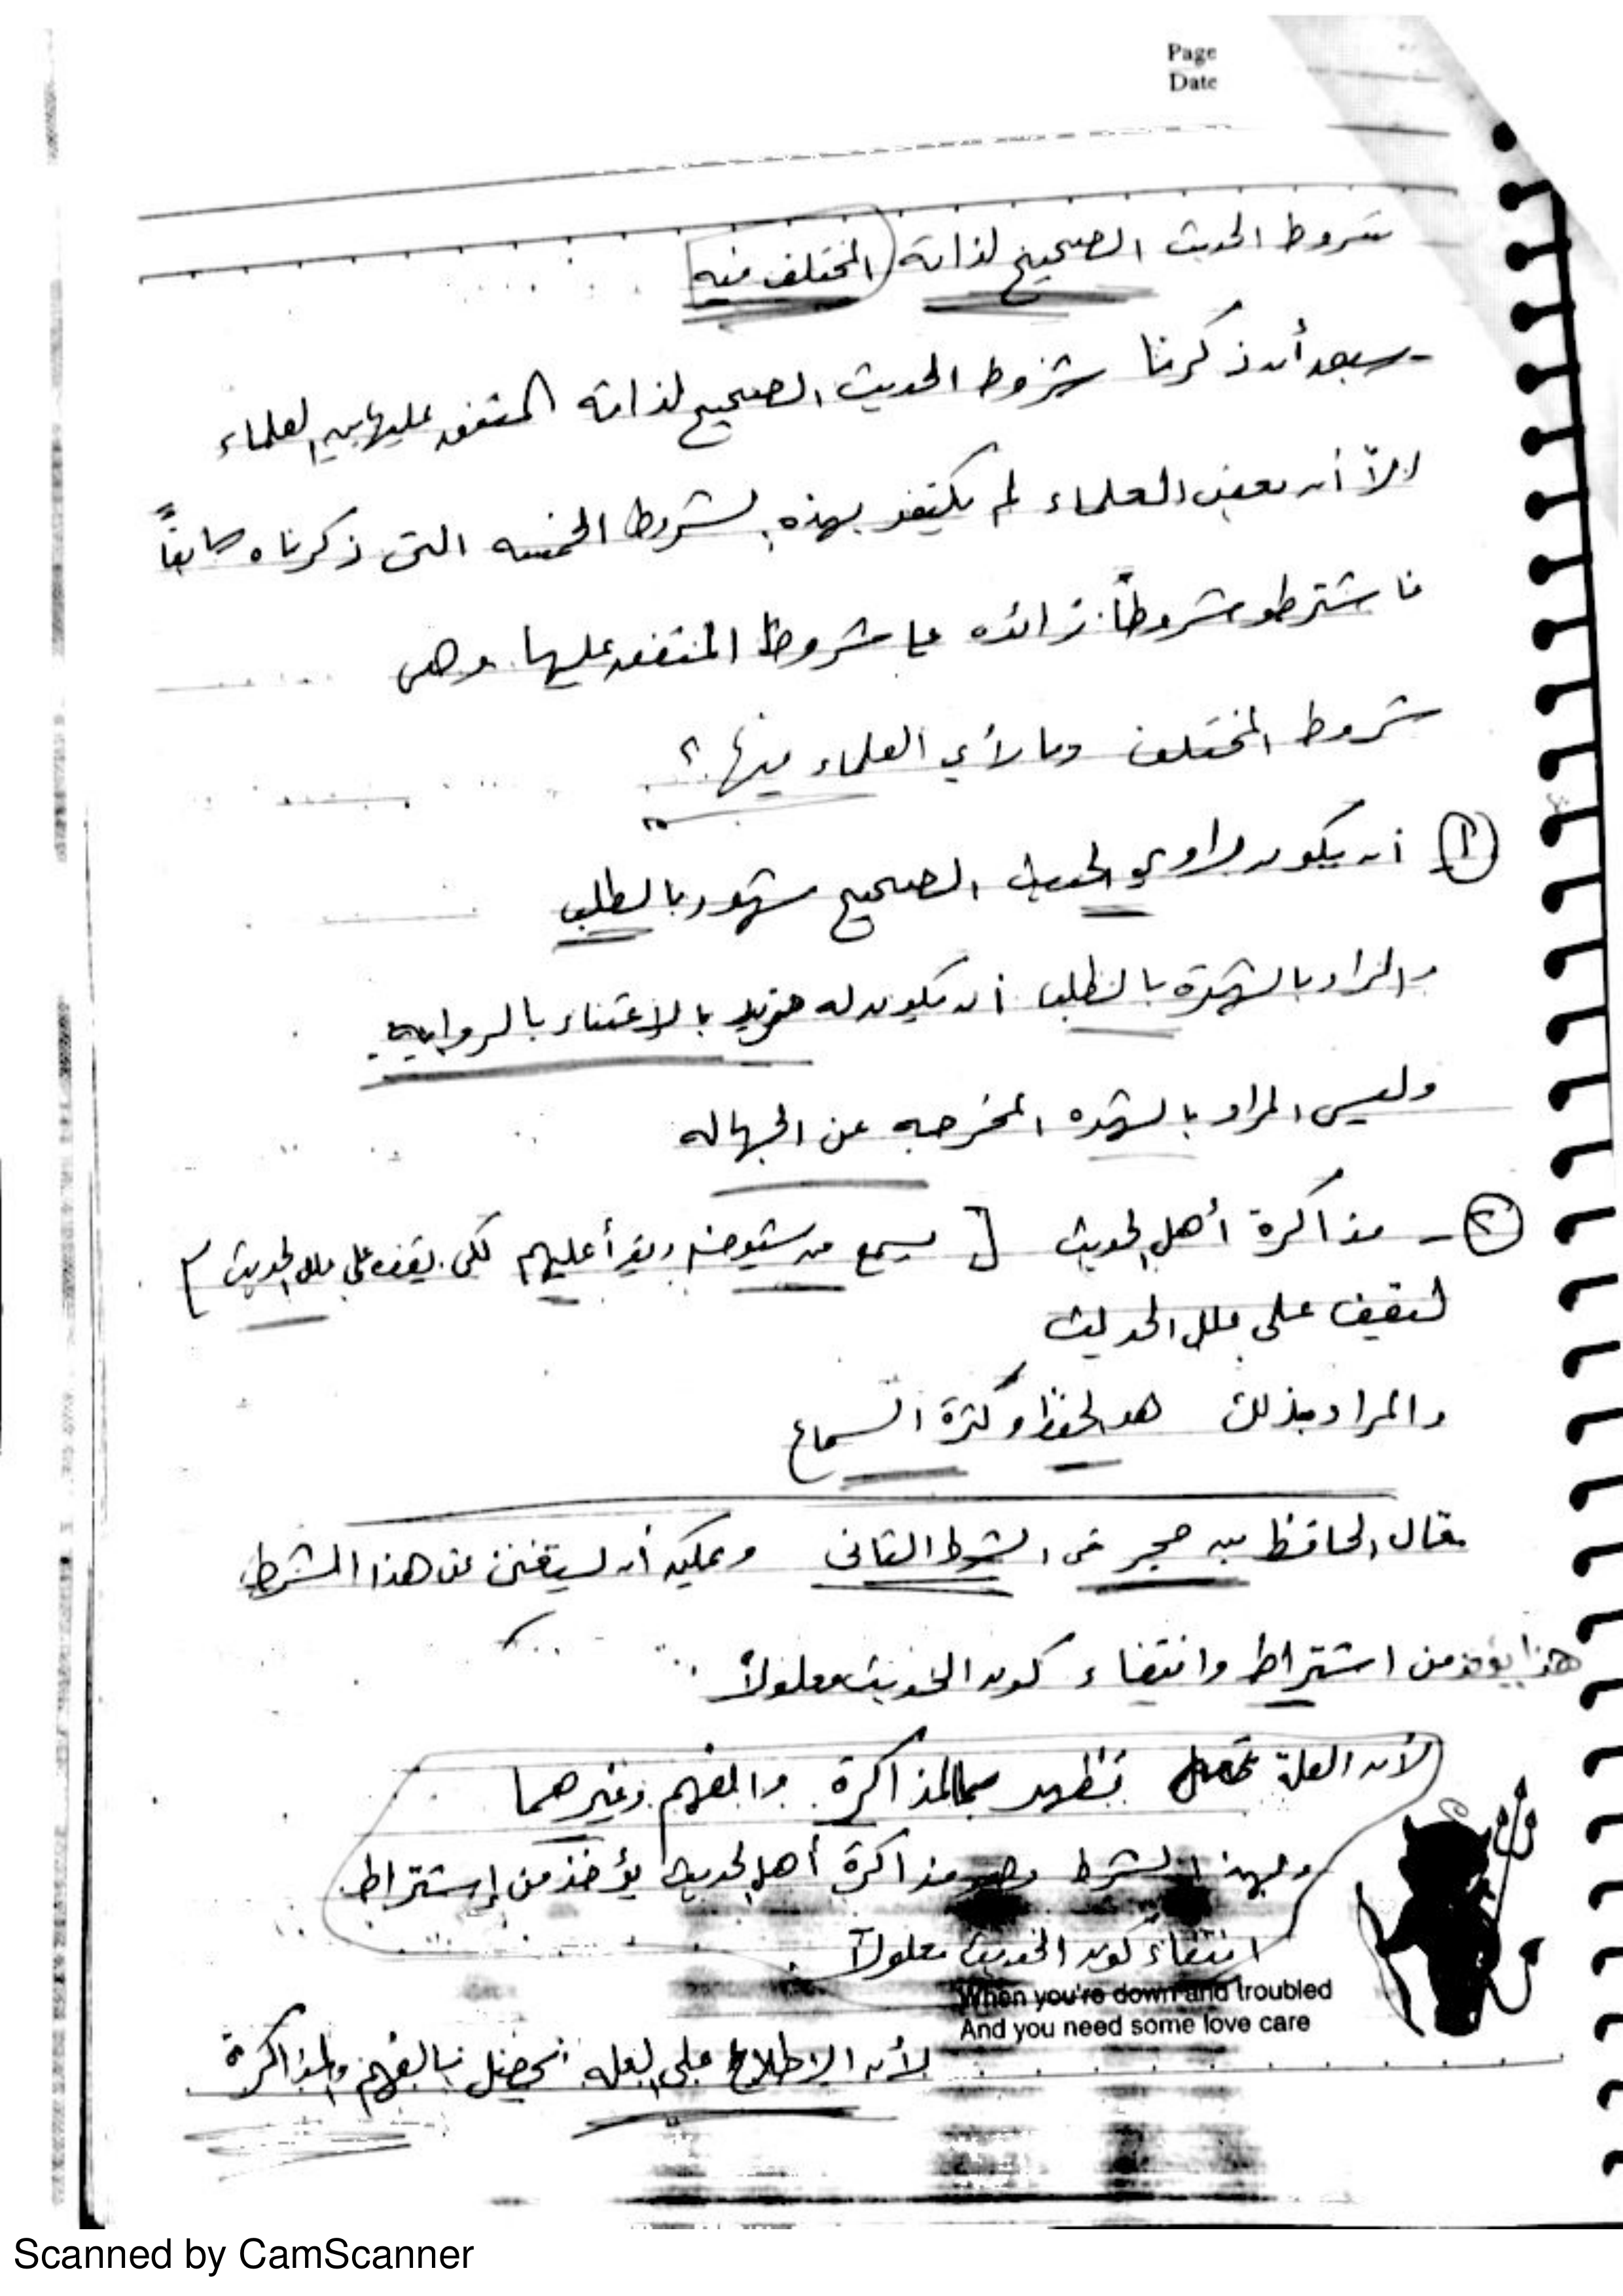 Page
Date
شروط الحديث الصحيح لذاته (المختلف فيه)
- بعد أن ذكرنا شروط الحديث الصحيح لذاته المتفق عليها بين العلماء
إلاّ أن بعض العلماء لم يكتفو بهذه الشروط الخمسه التى ذكرناه سابقاً
فاشترطو شروطاً زائده على شروط المتفق عليها وهى
شروط المختلف وما رأي العلماء فيها؟
١ أن يكون راوي الحديث الصحيح مشهور بالطلب
والمراد بالشهرة بالطلب أن يكون له مزيد بالاعتناء بالروايه.
وليس المراد بالشهره المخرجه عن الجهاله
٢ - مذاكرة أهل الحديث [يسمع من شيوخه ويقرأ عليهم لكى يقف على علل الحديث]
ليقف على علل الحديث
والمراد بذلك هو الحفظ وكثرة السماع
قال الحافظ بن حجر فى الشرط الثانى ويمكن أن يستغنى عن هذا الشرط
هذا يؤخذ من اشتراط وانتفاء كون الحديث معلولاً
لأن العلة تظهر بالمذاكرة والفهم وغيرهما
وبهذا الشرط وهو مذاكرة أهل الحديث يؤخذ من إشتراط
انتفاء كون الحديث معلولاً.
When you're down and troubled
And you need some love care
لأن الإطلاع على العله تحصل بالفهم والمذاكرة
Scanned by CamScanner